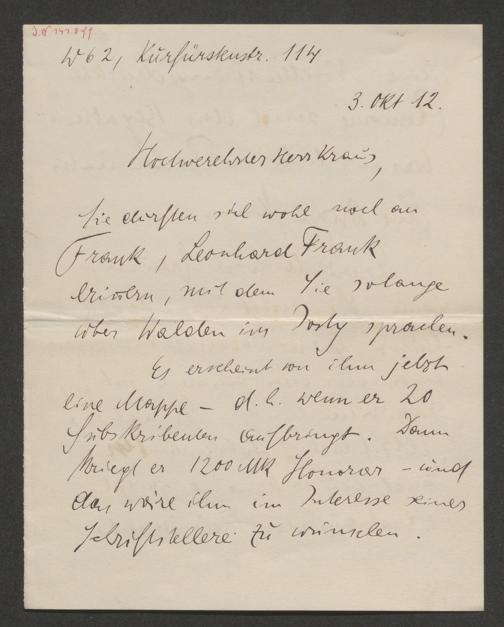 I.N 141.899
W 62, Kurfürstenstr. 114
3. Okt 12.
Hochverehrter Herr Kraus,
Sie dürften sich wohl noch an
Frank, Leonhard Frank
erinnern, mit dem Sie solange
über Walden im Josty sprachen.
Es erscheint von ihm jetzt
eine Mappe – d. h. wenn er 20
Subskribenten aufbringt. Dann
kriegt er 1200 Mk Honorar – und
das wäre ihm im Interesse seiner
Schriftstellerei zu wünschen.